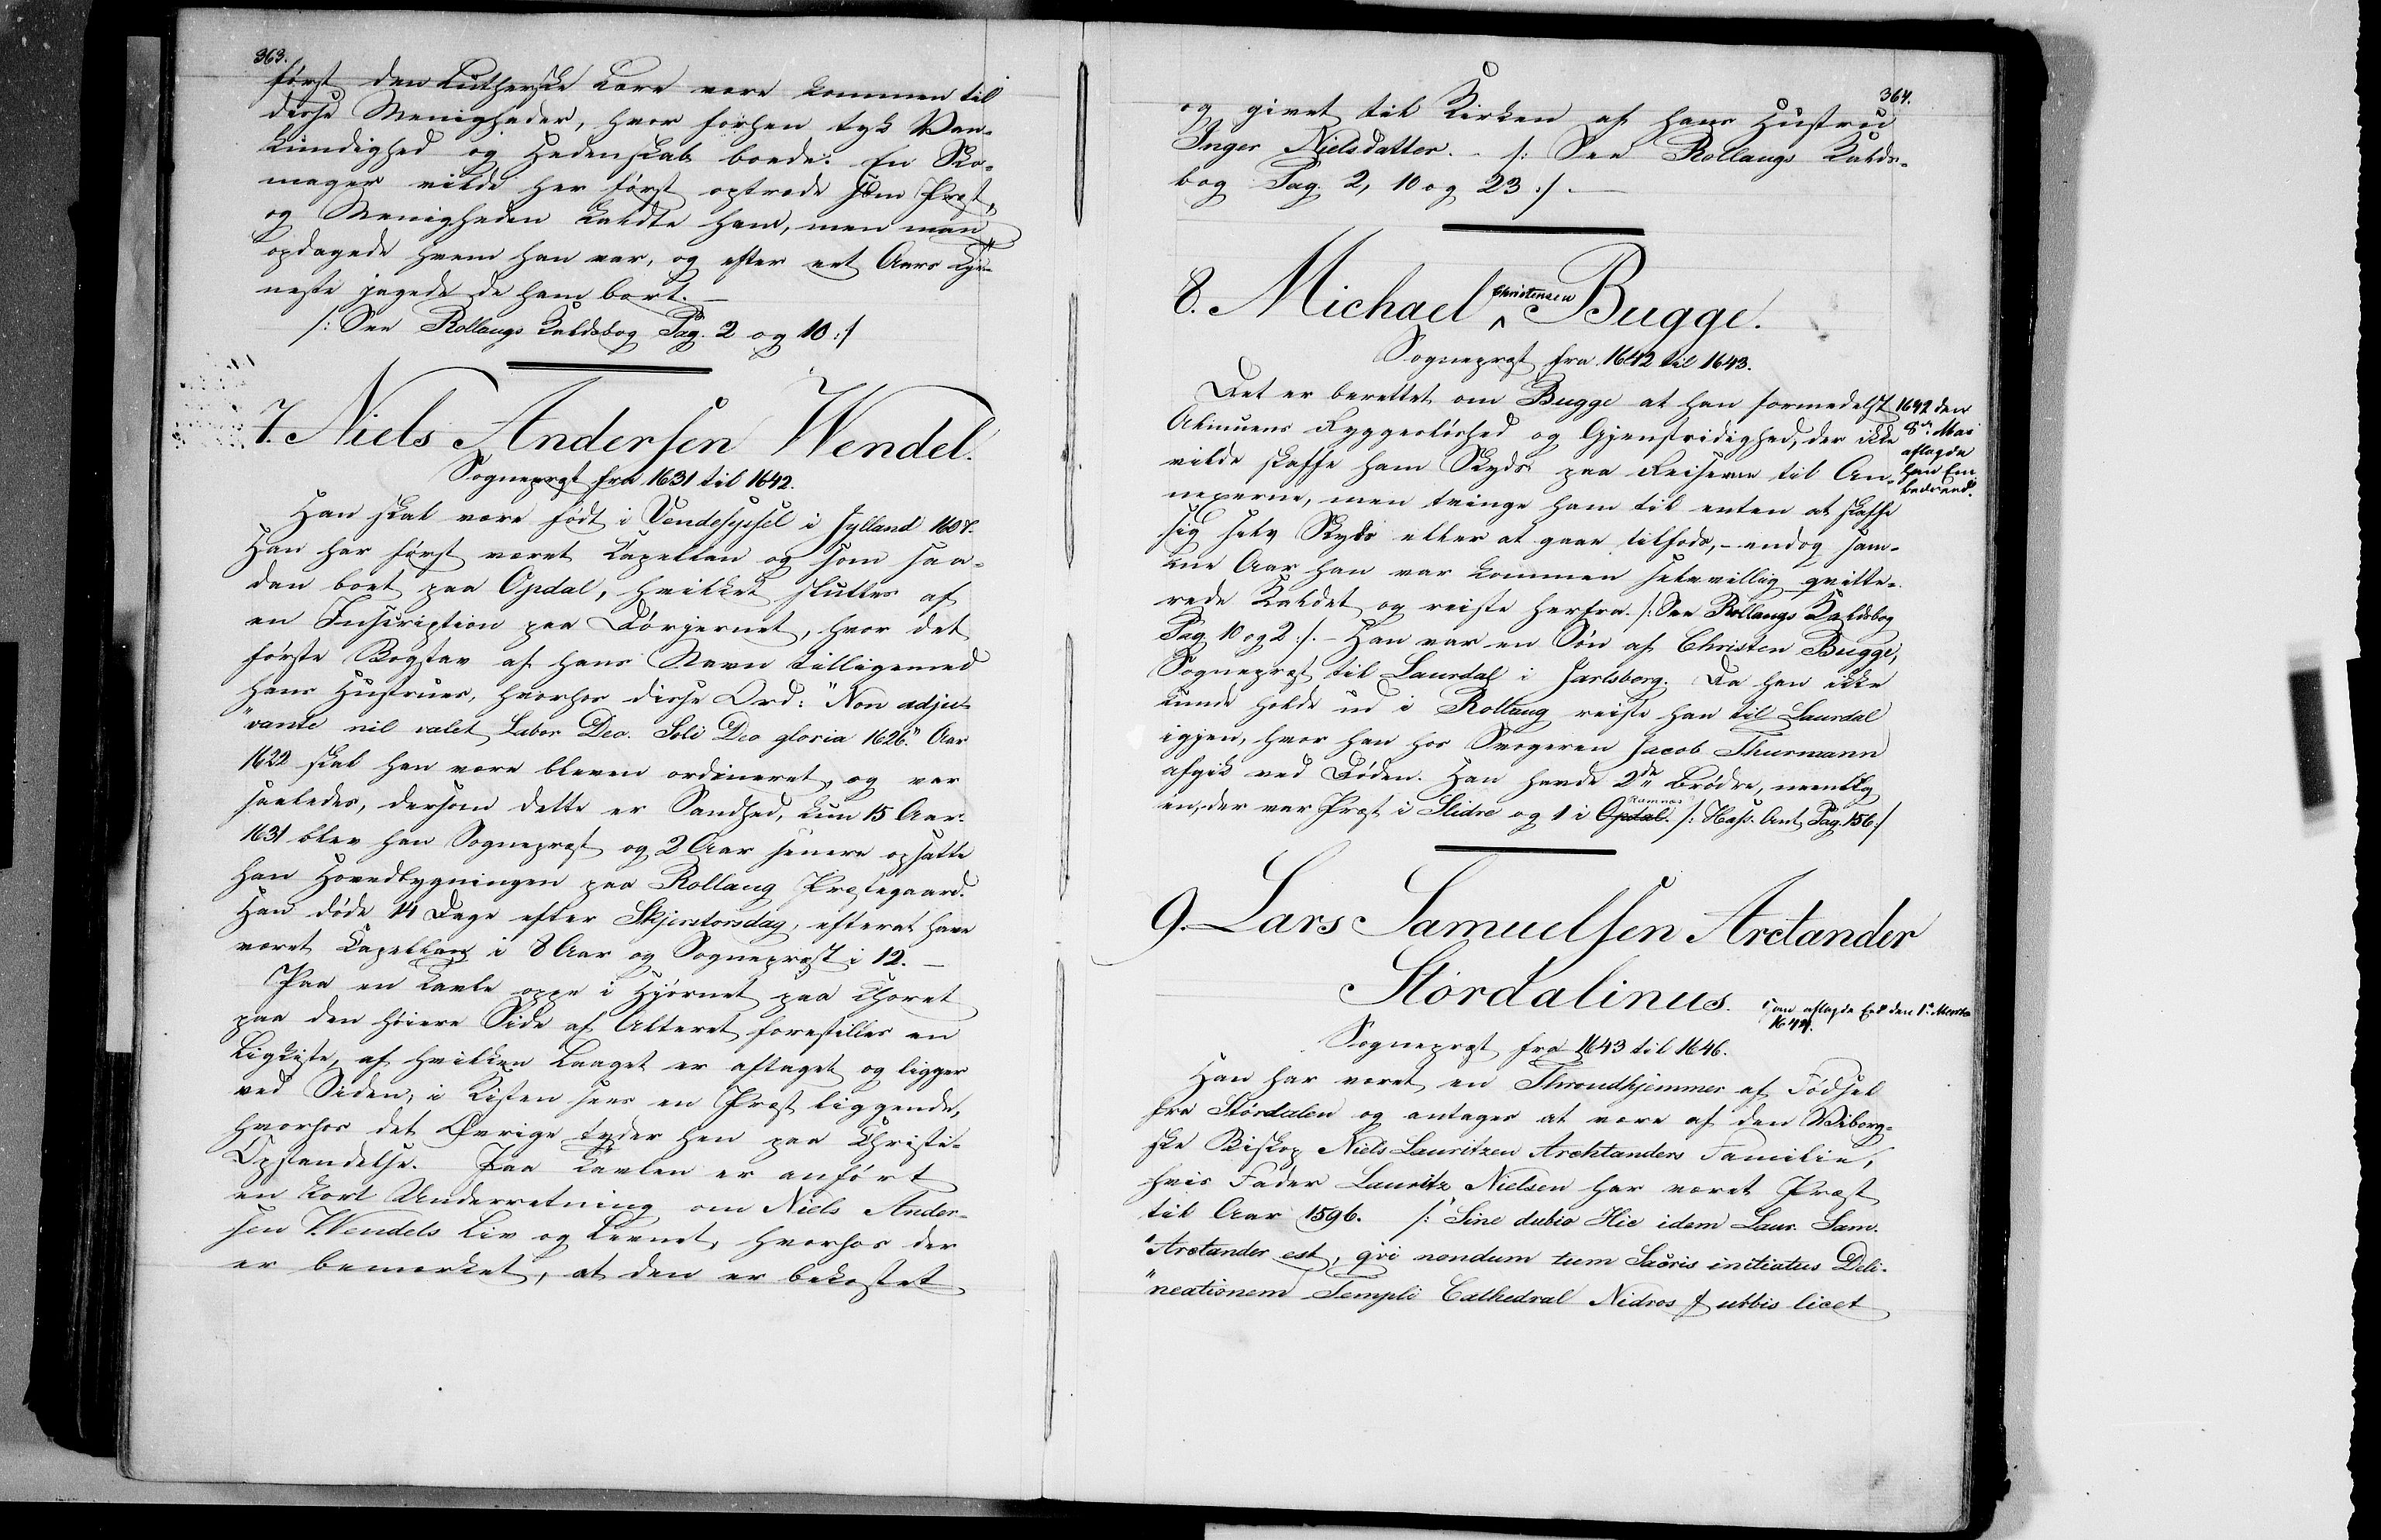 363.
først den Lutherske Lære være kommen til
disse Menigheder, hvor forhen tyk Van-
kundighed og Hedenskab boede. En Sko-
mager vilde her først optræde som Præst,
og Menigheden kaldte ham, men man
opdagede hvem han var, og efter eet Aars Tje-
neste jagede de ham bort. —
/: See Rollaugs Kaldsbog Pag. 2 og 10 :/
7. Niels Andersen Wendel.
Sognepræst fra 1631 til 1642.
Han skal være født i Vendesyssel i Jylland 1607.
Han har først været Kapellan og som saa-
dan boet paa Opdal, hvilket sluttes af
en Inscription paa Dørjernet, hvor det
første Bogstav af hans Navn tilligemed
hans Hustrues, hvorhos disse Ord: "Non adju-
"vante nil valet Labor Deo. Soli Deo gloria 1626." Aar
1622 skal han være bleven ordineret, og var
saaledes, dersom dette er Sandhed, kun 15 Aar.
1631 blev han Sognepræst og 2 Aar senere opsatte
han Hovedbygningen paa Rollaug Præstegaard.
Han døde 14 Dage efter Skjerstorsdag, efterat have
været Capellan i 8 Aar og Sognepræst i 12. —
Paa en Tavle oppe i Hjørnet paa Choret
paa den høiere Side af Alteret forestilles en
Ligkiste, af hvilken Laaget er aftaget og ligger
ved Siden; i Kisten sees en Præst liggende,
hvorhos det Øvrige tyder hen paa Christi-
Opstandelse. Paa Tavlen er anført
en kort Underretning om Niels Ander-
sen Wendels Liv og Levnet, hvorhos der
er bemærket, at den er bekostet
364.
og givet til Kirken af hans Hustrue
Inger Nielsdatter. - /: See Rollaugs Kalds-
bog Pag. 2, 10 og 23 :/. —
8. Michael Christensen Bugge.
Sognepræst fra 1642 til 1643.
Det er berettet om Bugge at han formedelst
Almuens Ryggesløshed og Gjenstridighed, der ikke
vilde skaffe ham Skyds paa Reiserne til An-
nexerne, men tvinge ham til enten at skaffe
sig selv Skyds eller at gaae tilfods, - endog sam-
me Aar han var kommen selvvillig qvitte-
rede Kaldet og reiste herfra. /: See Rollaugs Kaldsbog
Pag. 10 og 2 :/. - Han var en Søn af Christen Bugge,
Sognepræst til Laurdal i Jarlsborg. Da han ikke
kunde holde ud i Rollaug reiste han til Laurdal
igjen, hvor han hos Svogeren Jacob Thurmann
afgik ved Døden. Han havde 2de Brødre, nemlig
en, der var Præst i Slidre og 1 i Opdal. Ramnæs /: Hafs. Ant. Pag. 156 :/
1642 den
8de Mai
aflagde
han Em-
bedseed.
9. Lars Samuelsen Arctander
Stördalinus.
Han aflagde Eed den 1ste Martii
1644.
Sognepræst fra 1643 til 1646.
Han har været en Throndhjemmer af Fødsel
fra Stördalen og antages at være af den Wiborg-
ske Biskop Niels Lauritzen Archtanders Familie,
hvis Fader Lauritz Nielsen har været Præst
til Aar 1596. /: "Sine dubio Hic idem Laur. Sam.
"Arctander est, qvi nondum tum Sacris initiatus Deli-
"neationem Templi Cathedral Nidros f urbis licet